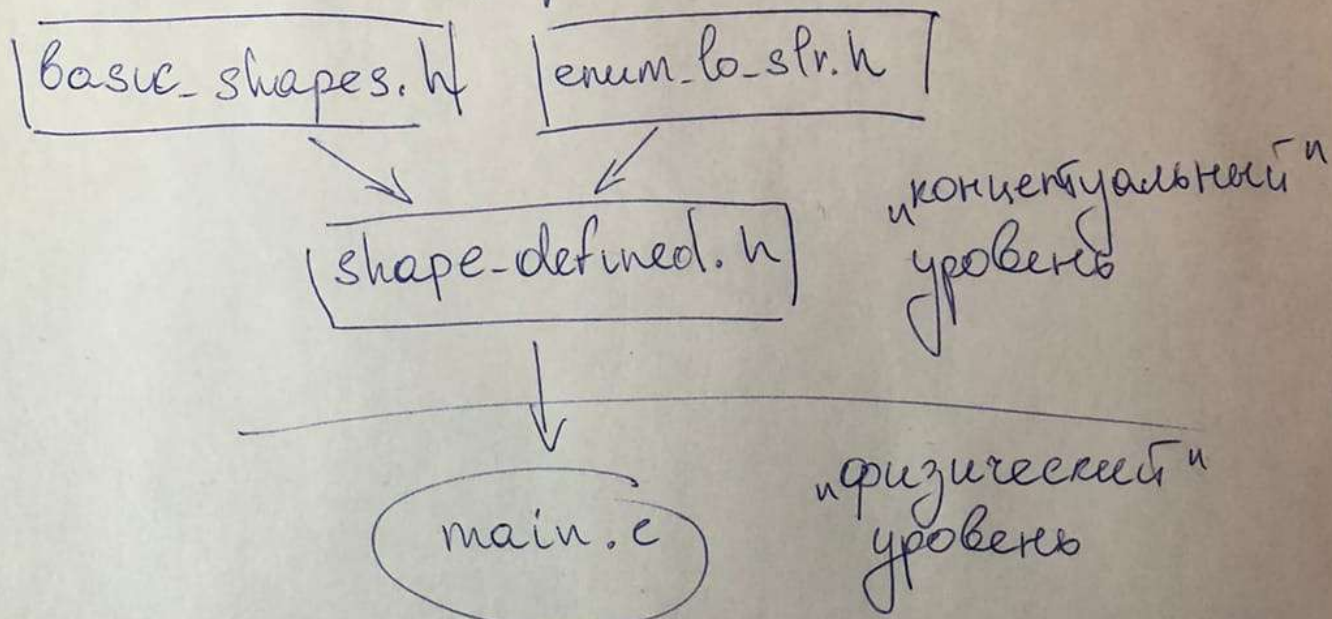 basic_shapes.h
enum_to_str.h
shape-defined.h
„концептуальный"
уровень
main.c
„физический"
уровень